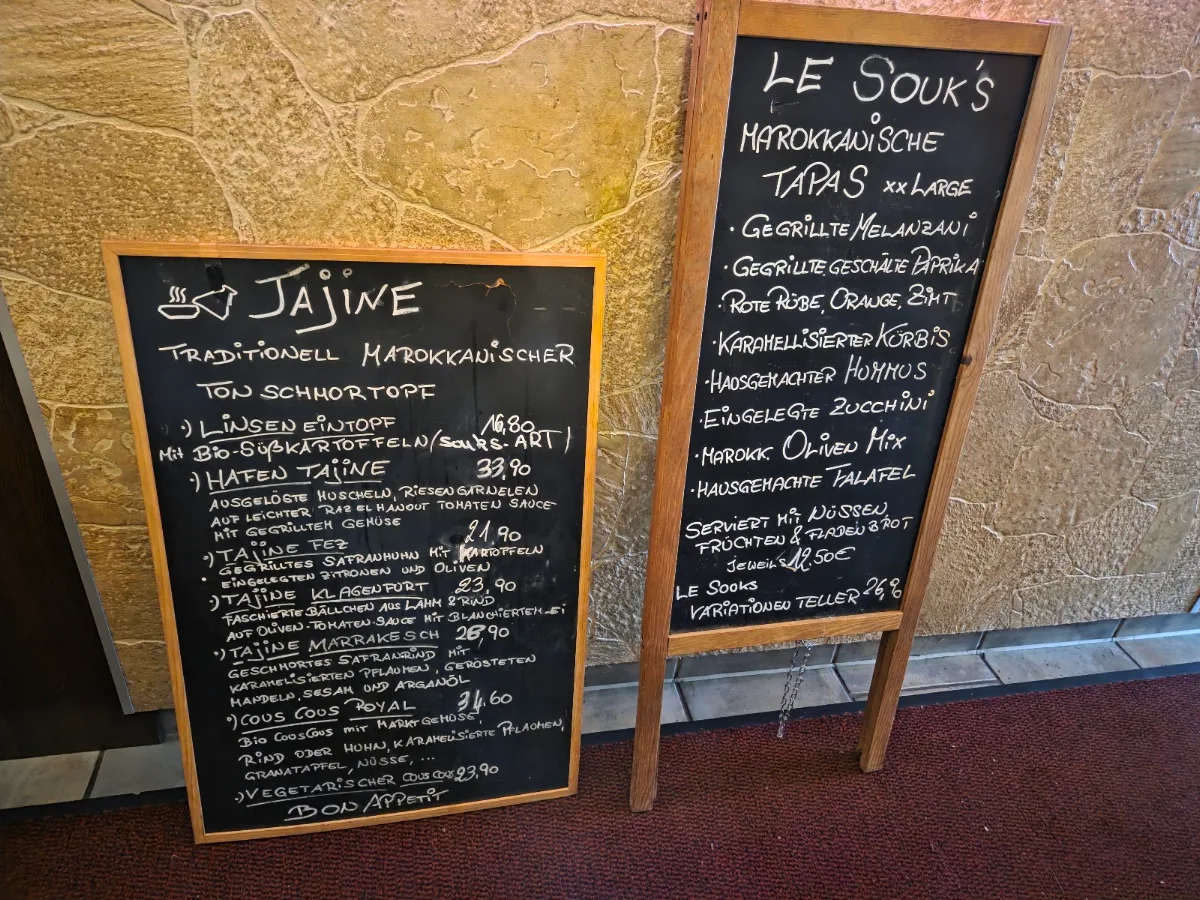 TAJINE
TRADITIONELL MAROKKANISCHER
TON SCHMORTOPF
·) LINSENEINTOPF 16,80
Mit BIO-SÜßKARTOFFELN (SOUKS-ART)
·) HAFEN TAJINE 33,90
AUSGELÖSTE MUSCHELN, RIESENGARNELEN
AUF LEICHTER RAZ EL HANOUT TOMATEN SAUCE
MIT GEGRILLTEM GEMÜSE
·) TAJINE FEZ 21,90
GEGRILLTES SAFRANHUHN MIT KARTOFFELN
EINGELEGTEN ZITRONEN UND OLIVEN
·) TAJINE KLAGENFURT 23,90
FASCHIERTE BÄLLCHEN AUS LAMM & RIND
AUF OLIVEN-TOMATEN-SAUCE MIT BLANCHIERTEM EI
·) TAJINE MARRAKESCH 26,90
GESCHMORTES SAFRANRIND MIT
KARAMELISIERTEN PFLAUMEN, GERÖSTETEN
MANDELN, SESAM UND ARGANÖL
·) COUS COUS ROYAL 34.60
BIO COUSCOUS MIT MARKTGEMÜSE,
RIND ODER HUHN, KARAMELISIERTE PFLAUMEN,
GRANATAPFEL, NÜSSE, ...
·) VEGETARISCHER COUS COUS 23,90
BON APPETIT
LE SOUK'S
MAROKKANISCHE
TAPAS XX LARGE
· GEGRILLTE MELANZANI
· GEGRILLTE GESCHÄLTE PAPRIKA
· ROTE RÜBE, ORANGE, ZIMT
· KARAMELLISIERTER KÜRBIS
· HAUSGEMACHTER HUMMUS
· EINGELEGTE ZUCCHINI
· MAROKK. OLIVEN MIX
· HAUSGEMACHTE FALAFEL
SERVIERT MIT NÜSSEN,
FRÜCHTEN & FLADENBROT
JEWEILS 12.50€
LE SOUKS
VARIATIONEN TELLER 26,90